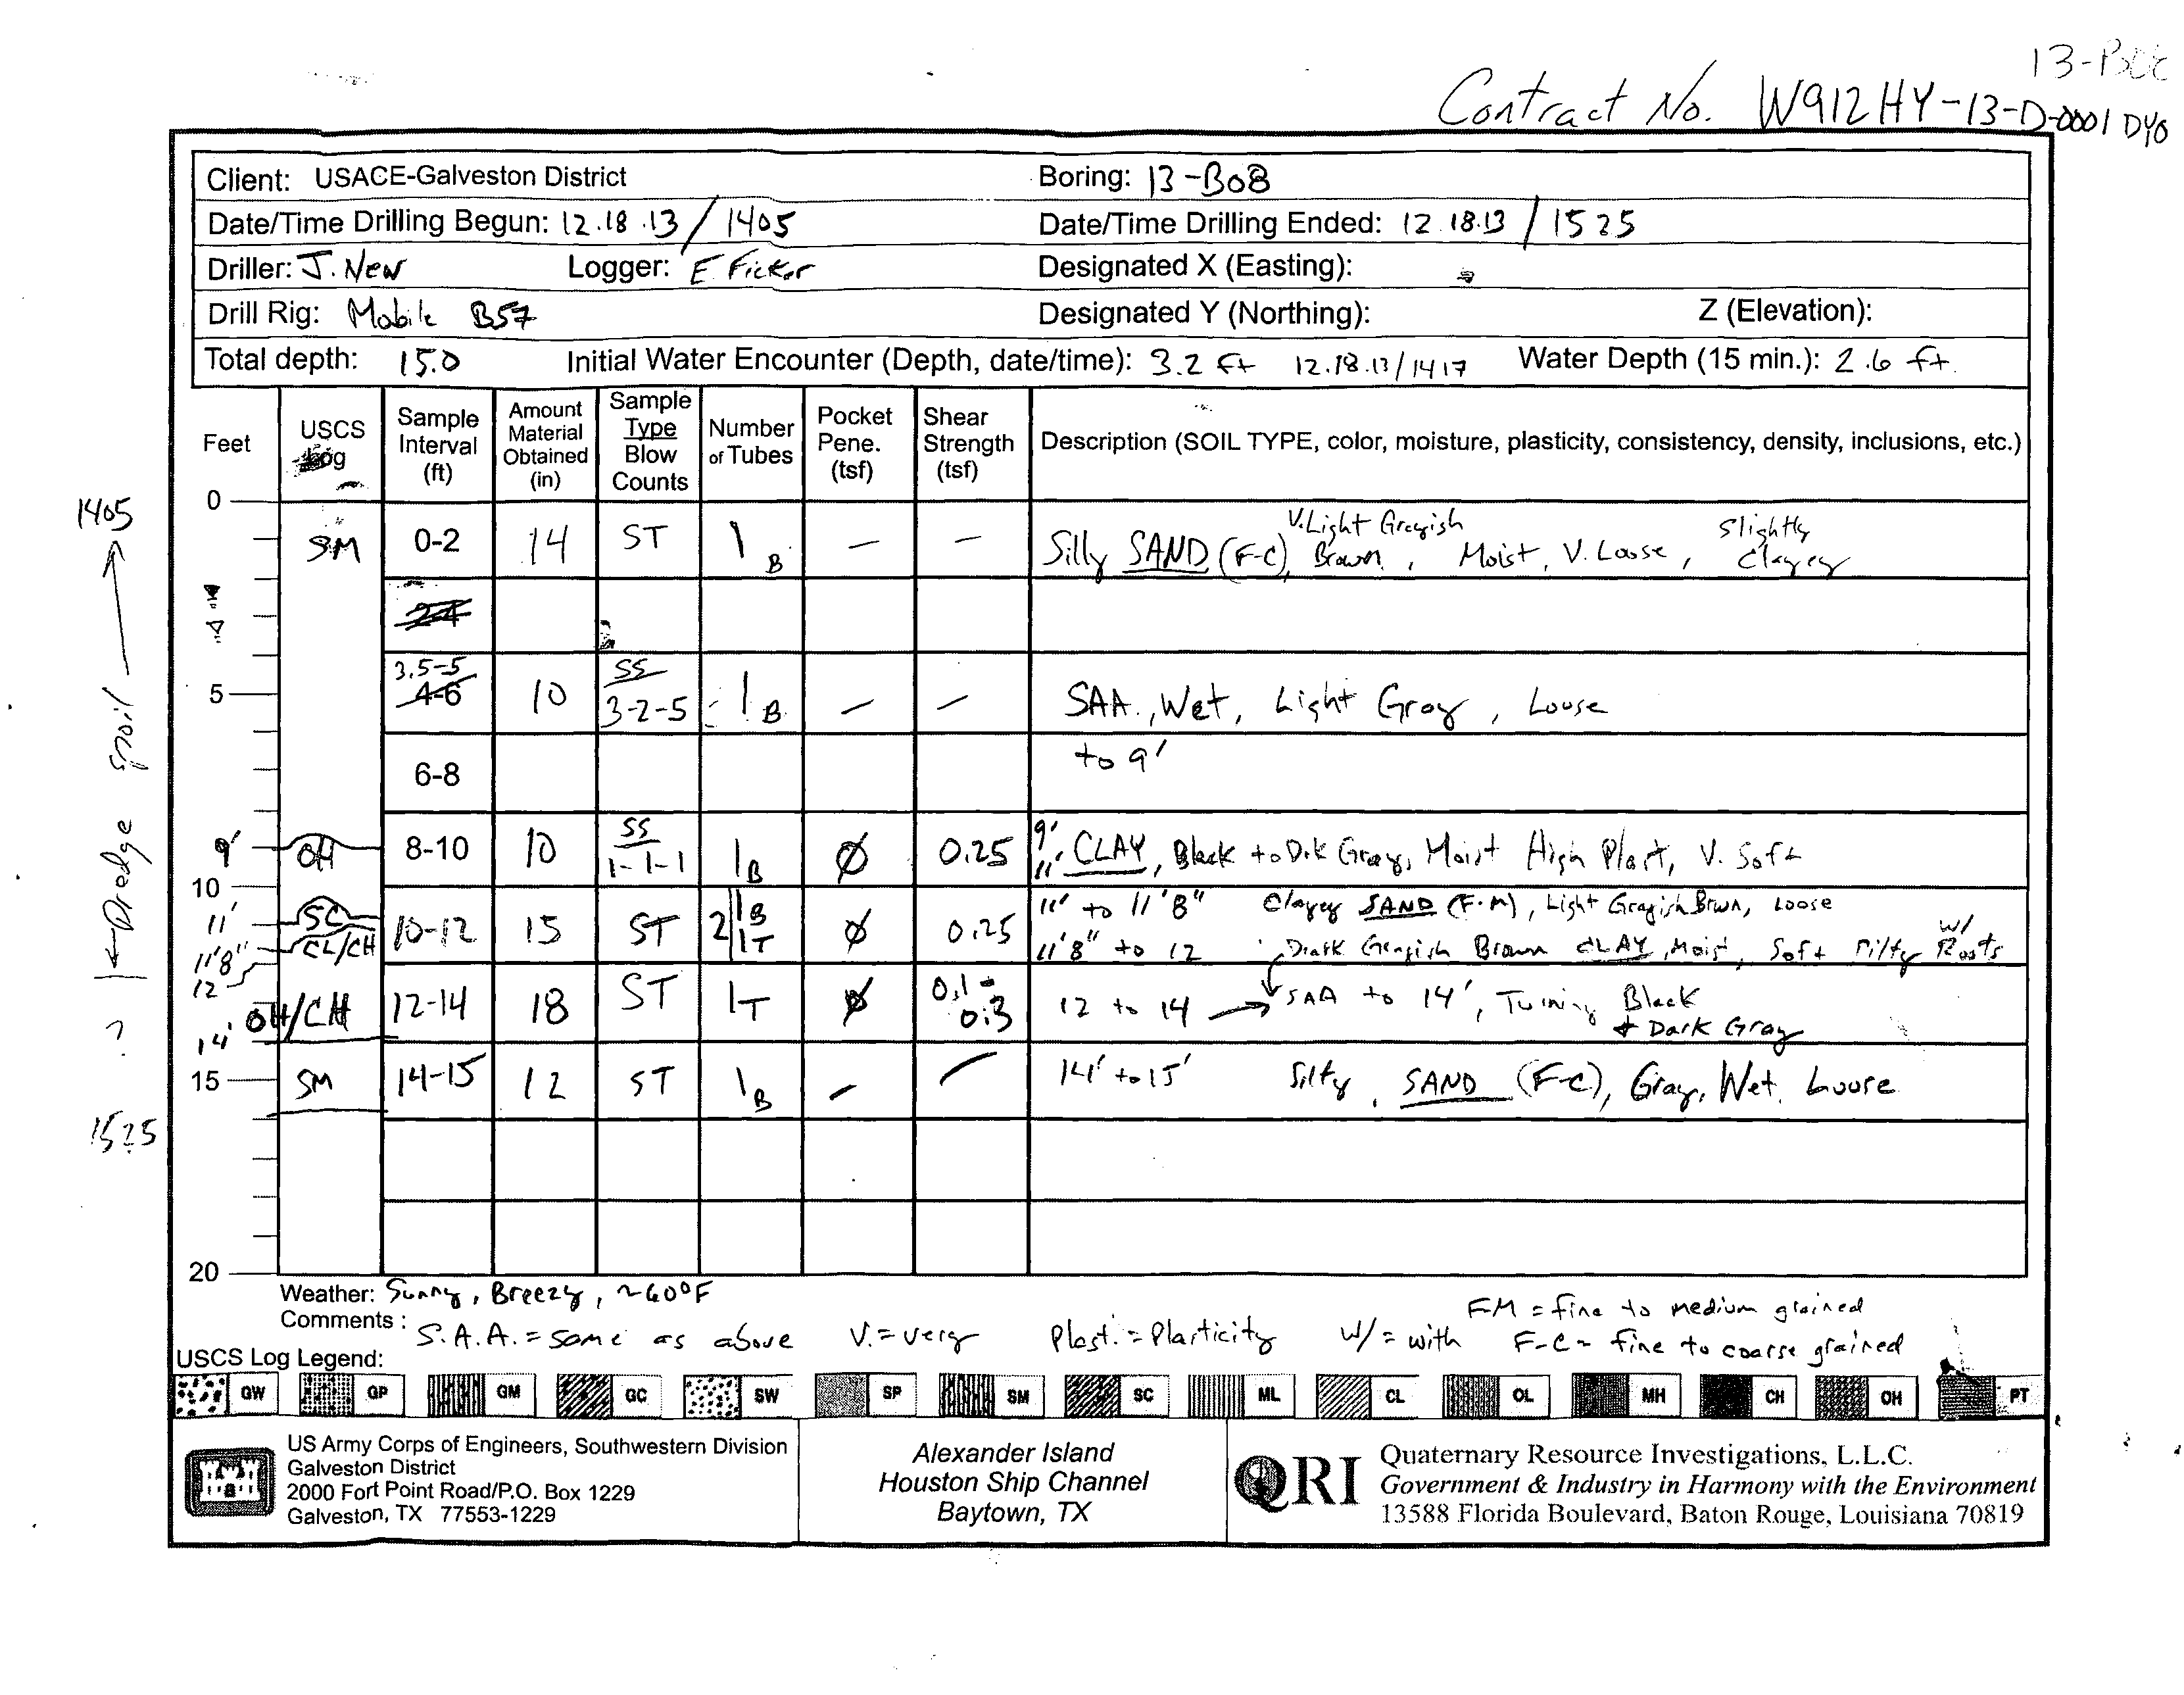 13-B08
Contract No. W912HY-13-D-0001 DY0
Client: USACE-Galveston District Boring: 13-B08
Date/Time Drilling Begun: 12.18.13 / 1405 Date/Time Drilling Ended: 12.18.13 / 1525
Driller: J. New Logger: E. Ficker Designated X (Easting):
Drill Rig: Mobile B57 Designated Y (Northing): Z (Elevation):
Total depth: 15.0 Initial Water Encounter (Depth, date/time): 3.2 ft 12.18.13/1417 Water Depth (15 min.): 2.6 ft.
Feet USCS Log Sample Interval (ft) Amount Material Obtained (in) Sample Type Blow Counts Number of Tubes Pocket Pene. (tsf) Shear Strength (tsf) Description (SOIL TYPE, color, moisture, plasticity, consistency, density, inclusions, etc.)
0
1405
SM 0-2 14 ST 1 B — — Silty SAND (F-C), V.Light Grayish Brown, Moist, V. Loose, Slightly Clayey
2-4
3.5-5
5 4-6 10 SS 3-2-5 1 B — — SAA., Wet, Light Gray, Loose
6-8 to 9'
Dredge spoil
9' OH 8-10 10 SS 1-1-1 1 B Ø 0.25 9' 11' CLAY, Black to Drk Gray, Moist High Plast, V. Soft
10
11' SC 10-12 15 ST 2 1B 1T Ø 0.25 11' to 11'8" Clayey SAND (F-M), Light Grayish Brwn, Loose
11'8" CL/CH 11'8" to 12 Dark Grayish Brown CLAY, Moist, Soft Silty w/ Roots
12
OH/CH 12-14 18 ST 1T Ø 0.1-0.3 12 to 14 → SAA to 14', Turning Black + Dark Gray
14'
15 SM 14-15 12 ST 1 B — — 14' to 15' Silty, SAND (F-C), Gray, Wet, Loose
1525
?
20
Weather: Sunny, Breezy, ~60°F
FM = fine to medium grained
Comments: S.A.A. = same as above V. = very Plast. = Plasticity w/ = with F-C = fine to coarse grained
USCS Log Legend:
GW GP GM GC SW SP SM SC ML CL OL MH CH OH PT
US Army Corps of Engineers, Southwestern Division
Galveston District
2000 Fort Point Road/P.O. Box 1229
Galveston, TX 77553-1229
Alexander Island
Houston Ship Channel
Baytown, TX
QRI
Quaternary Resource Investigations, L.L.C.
Government & Industry in Harmony with the Environment
13588 Florida Boulevard, Baton Rouge, Louisiana 70819